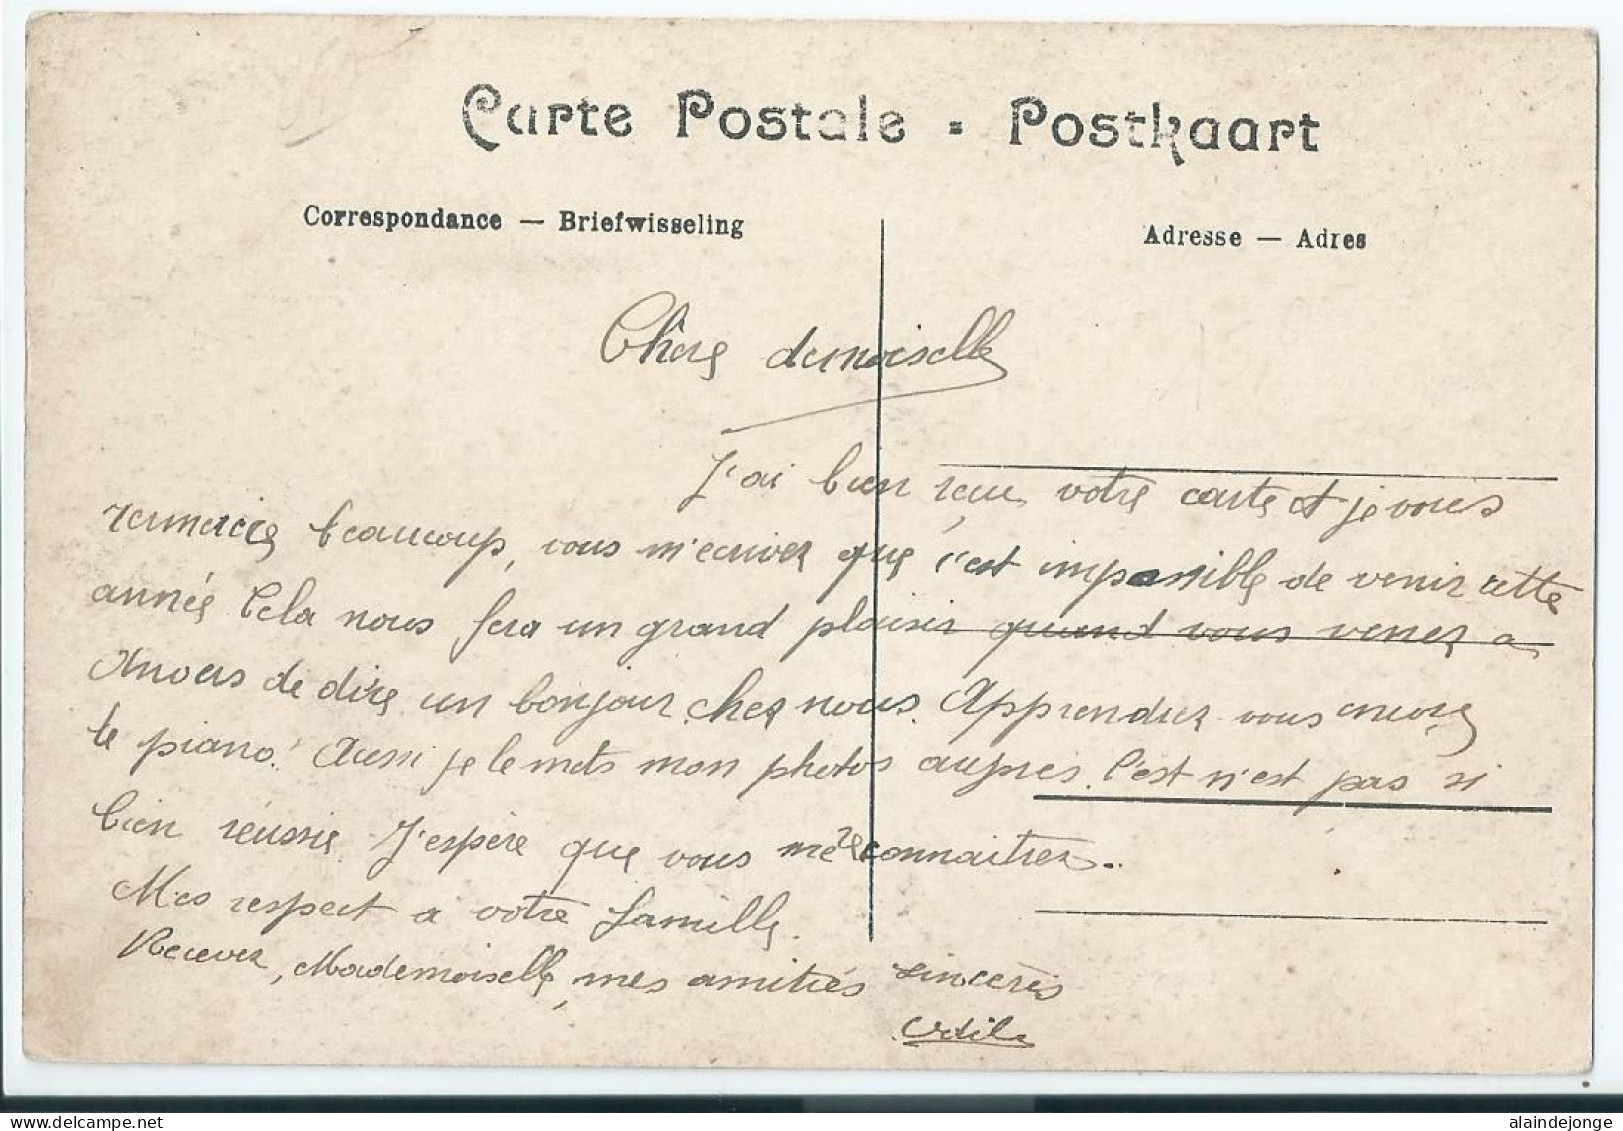 Carte Postale - Postkaart
Correspondance — Briefwisseling
Adresse — Adres
Chère demoiselle
J'ai bien reçu votre carte et je vous
remercie beaucoup, vous m'ecriver que c'est impossible de venir cette
année Cela nous fera un grand plaisir quand vous venez a
Anvers de dire un bonjour chez nous. Apprendrez vous encore
le piano! Aussi je le mets mon photos aupres. C'est n'est pas si
bien réussie J'espère que vous me reconnaitrez..
Mes respect a votre famille.
Recever, Mademoiselle, mes amitiés sincères
Odile
alaindejonge